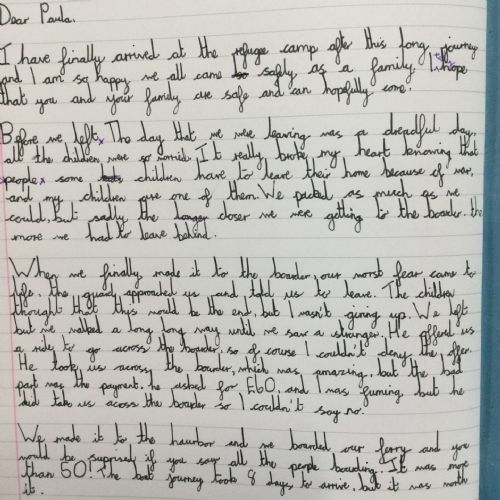 Dear Paula,
I have finally arrived at the refugee camp after this long journey
and I am so happy we all came so safely as a family. I hope
that you and your family are safe and can hopefully come.
Before we left, The day that we were leaving was a dreadful day,
all the children were so worried. It really broke my heart knowing that
people some children have to leave their home because of war,
and my children are one of them. We packed as much as we
could, but sadly the longer closer we were getting to the boarder, the
more we had to leave behind.
When we finally made it to the boarder, our worst fear came to
life. the guard approached us and told us to leave. The children
thought that this would be the end, but I wasn't giving up. We left
but we walked a long long way until we saw a stranger. He offerd us
a ride to go across the boarder, so of course I couldn't deny the offer.
He took us across the boarder, which was amazing, but the bad
part was the payment, he asked for £60, and I was fuming but he
did take us acoss the boarder so I couldn't say no.
We made it to the haurbor and we boarded our ferry and you
would be suprised if you saw all the people boarding. It was more
than 60! The boat journey took 8 days to arrive, but it was worth
it.